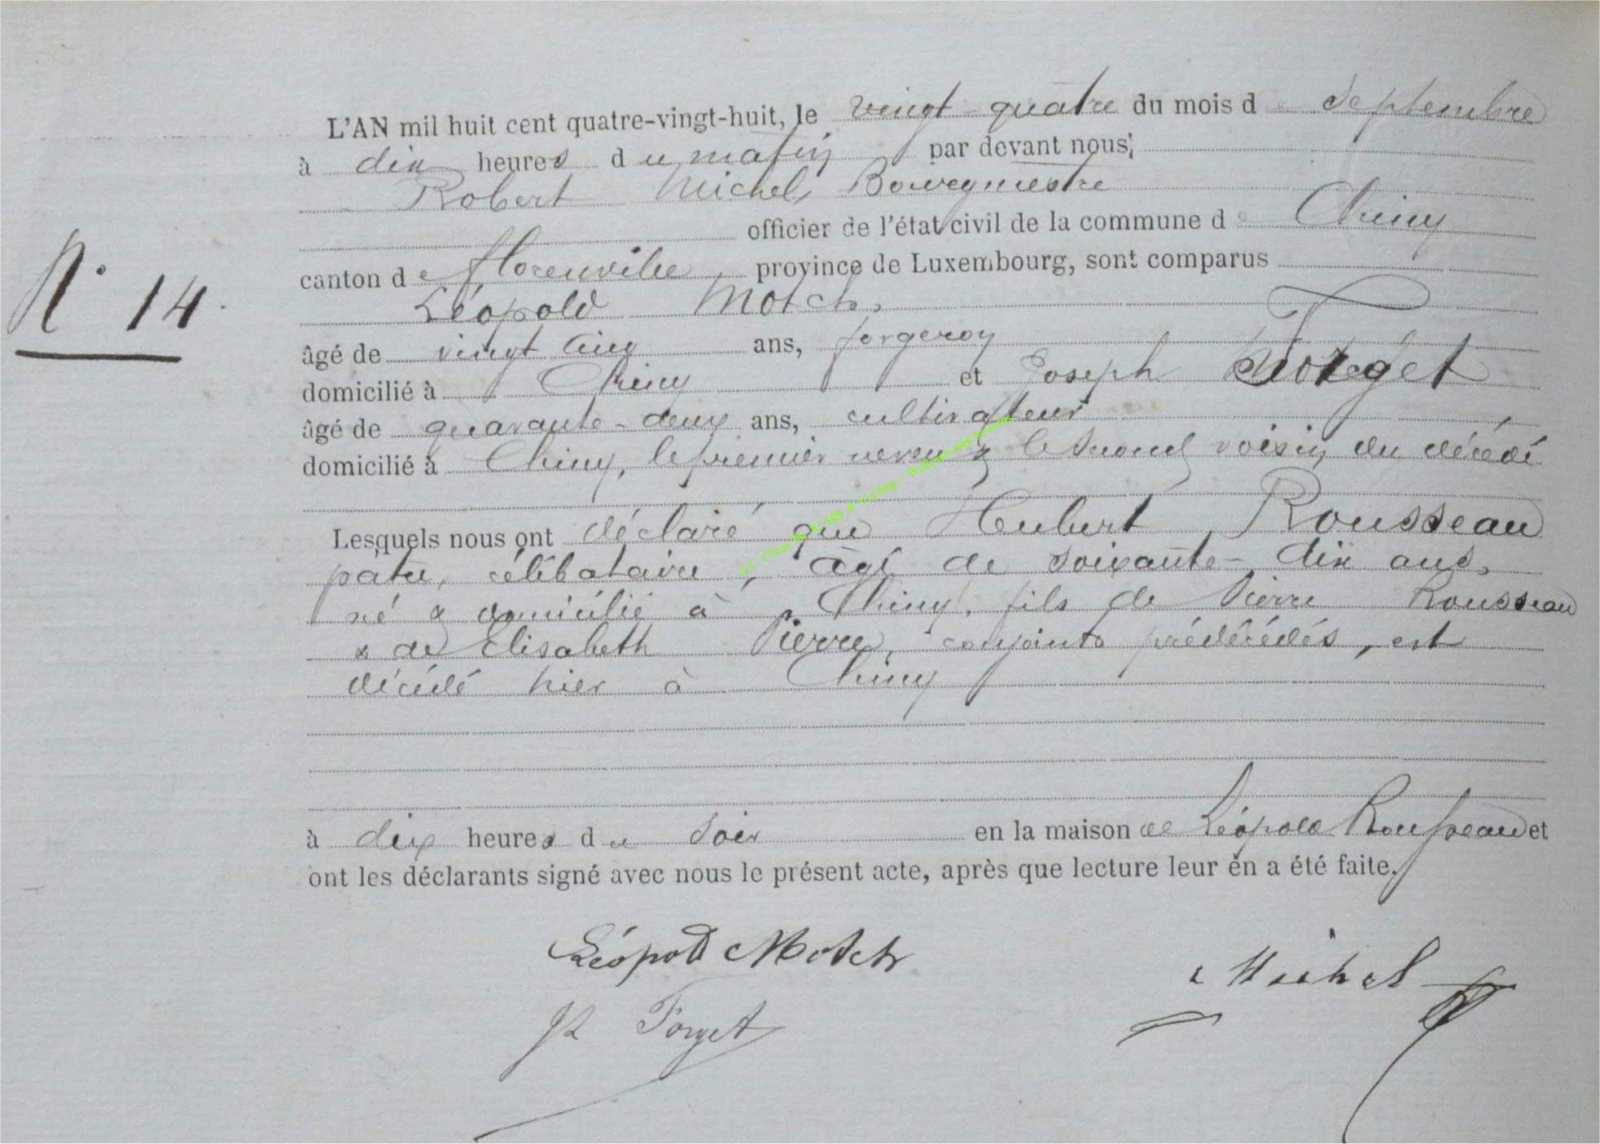 L'AN mil huit cent quatre-vingt-huit, le vingt-quatre du mois de Septembre
à dix heures du matin par devant nous,
Robert Michel, Bourgmestre
officier de l'état civil de la commune de Chiny
canton de Florenville, province de Luxembourg, sont comparus
Léopold Motch,
N° 14
âgé de vingt cinq ans, forgeron
domicilié à Chiny et Joseph Forget
âgé de quarante-deux ans, cultivateur
domicilié à Chiny, le premier neveu & le second voisin du décédé
Lesquels nous ont déclaré que Hubert Rousseau
célibataire, âgé de soixante-dix ans,
né & domicilié à Chiny, fils de Pierre Rousseau
& de Elisabeth Pierre, conjoints prédécédés, est
décédé hier à Chiny
à dix heures du soir en la maison de Léopold Rousseau et
ont les déclarants signé avec nous le présent acte, après que lecture leur en a été faite.
Léopold Motch
Michel
Forget